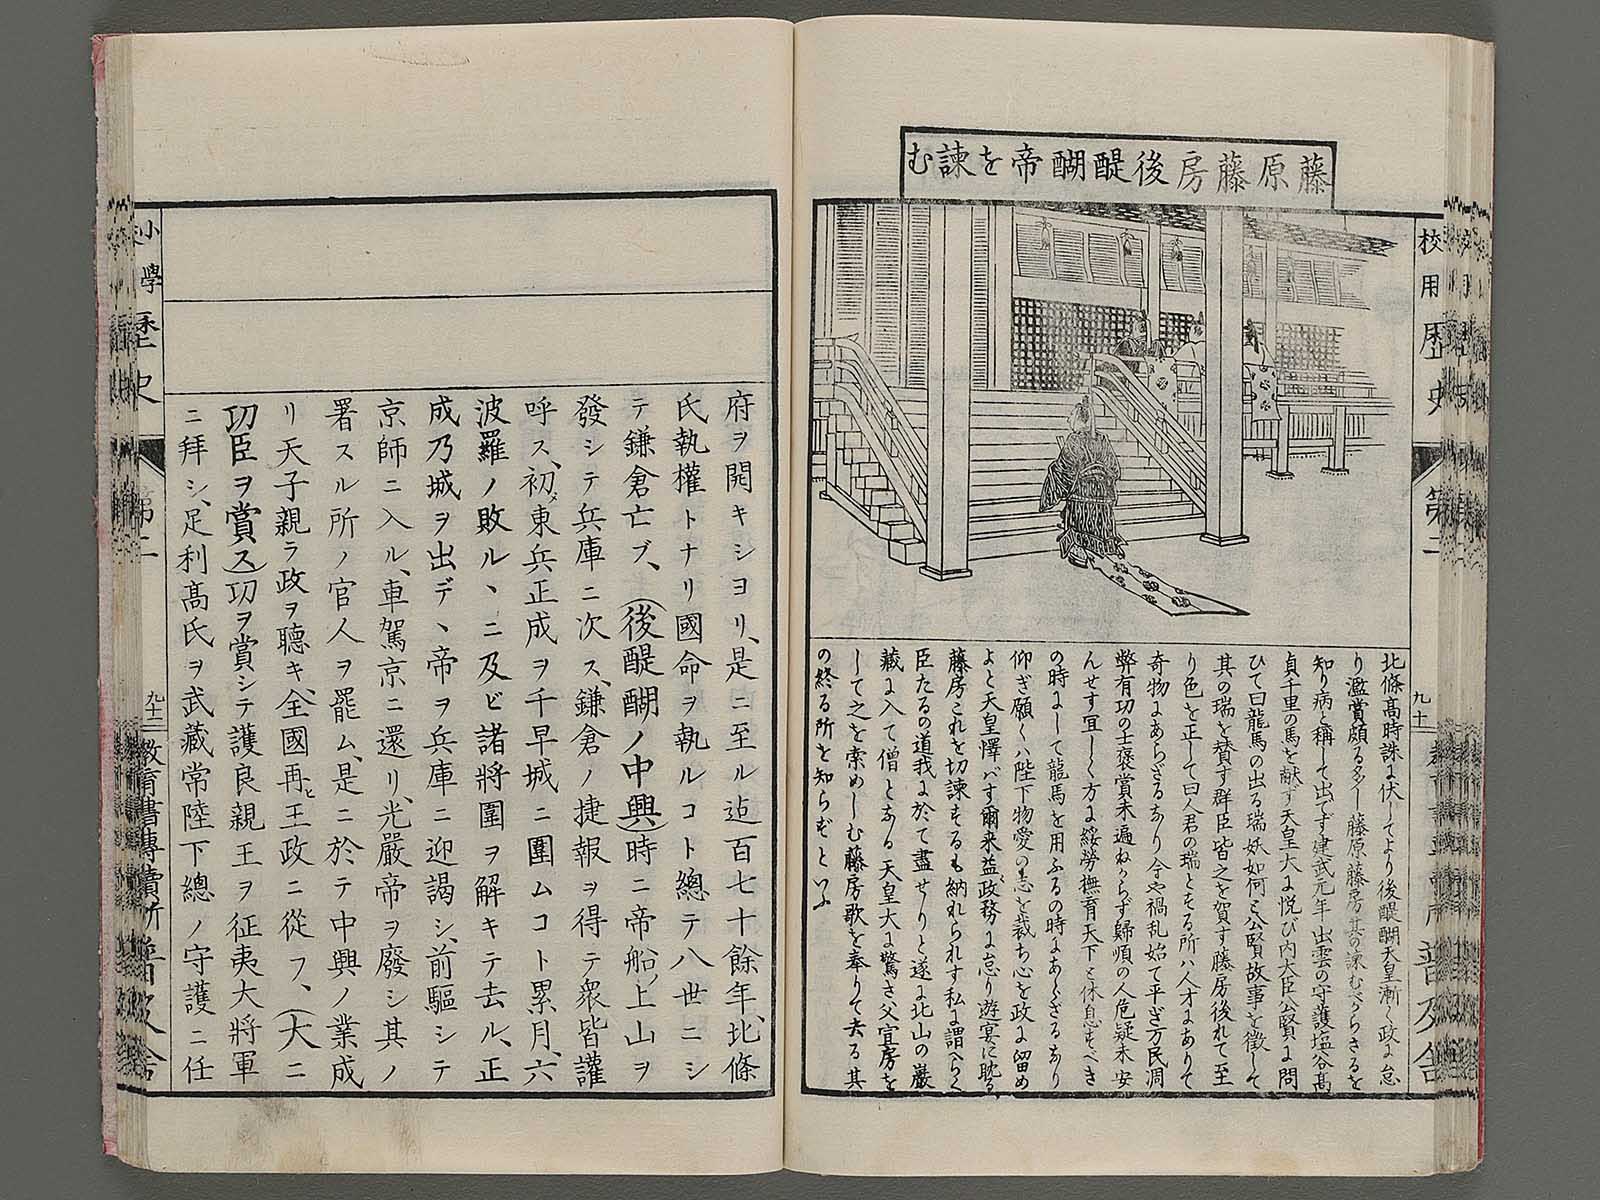 藤原藤房後醍醐帝を諫む
校用歴史 第二 九十二
北條髙時誅に伏してより後醍醐天皇漸く政に怠
り濫賞頗る多し藤原藤房其の諫むべからさるを
知り病と稱して出でず建武元年出雲の守護塩谷髙
貞千里の馬を献ず天皇大に悦び内大臣公賢に問
ひて曰龍馬の出る瑞妖如何と公賢故事を徴して
其の瑞を賛す群臣皆之を賀す藤房後れて至
り色を正して曰人君の瑞とする所ハ人才にありて
奇物にあらざるなり今や禍乱始て平ぎ万民凋
弊有功の士褒賞未遍ねからず歸順の人危疑未安
んせす宜しく方に綏勞撫育天下と休息すべき
の時にして龍馬を用ふるの時にあらざるなり
仰ぎ願くハ陛下物愛の志を裁ち心を政に留め
よと天皇懌バす爾来益政務に怠り遊宴に耽る
藤房これを切諫するも納れられす私に謂へらく
臣たるの道我に於て盡せりと遂に北山の巌
藏に入て僧となる天皇大に驚き父宣房を
して之を索めしむ藤房歌を奉りて去る其
の終る所を知らずといふ
府ヲ開キシヨリ、是ニ至ル迠百七十餘年、北條
氏執權トナリ國命ヲ執ルコト總テ八世ニシ
テ鎌倉亡ブ、（後醍醐ノ中興）時ニ帝船上山ヲ
發シテ兵庫ニ次ス、鎌倉ノ捷報ヲ得テ衆皆讙
呼ス、初メ東兵正成ヲ千早城ニ圍ムコト累月、六
波羅ノ敗ル、ニ及ビ諸將圍ヲ解キテ去ル、正
成乃城ヲ出デ、帝ヲ兵庫ニ迎謁シ、前驅シテ
京師ニ入ル、車駕京ニ還リ、光嚴帝ヲ廢シ其ノ
署スル所ノ官人ヲ罷ム、是ニ於テ中興ノ業成
リ天子親ラ政ヲ聽キ、全國再ヒ王政ニ從フ、（大ニ
功臣ヲ賞ス）功ヲ賞シテ護良親王ヲ征夷大將軍
ニ拜シ、足利髙氏ヲ武藏常陸下總ノ守護ニ任
小學歴史 第二 九十二 教育書專賣所普及舍